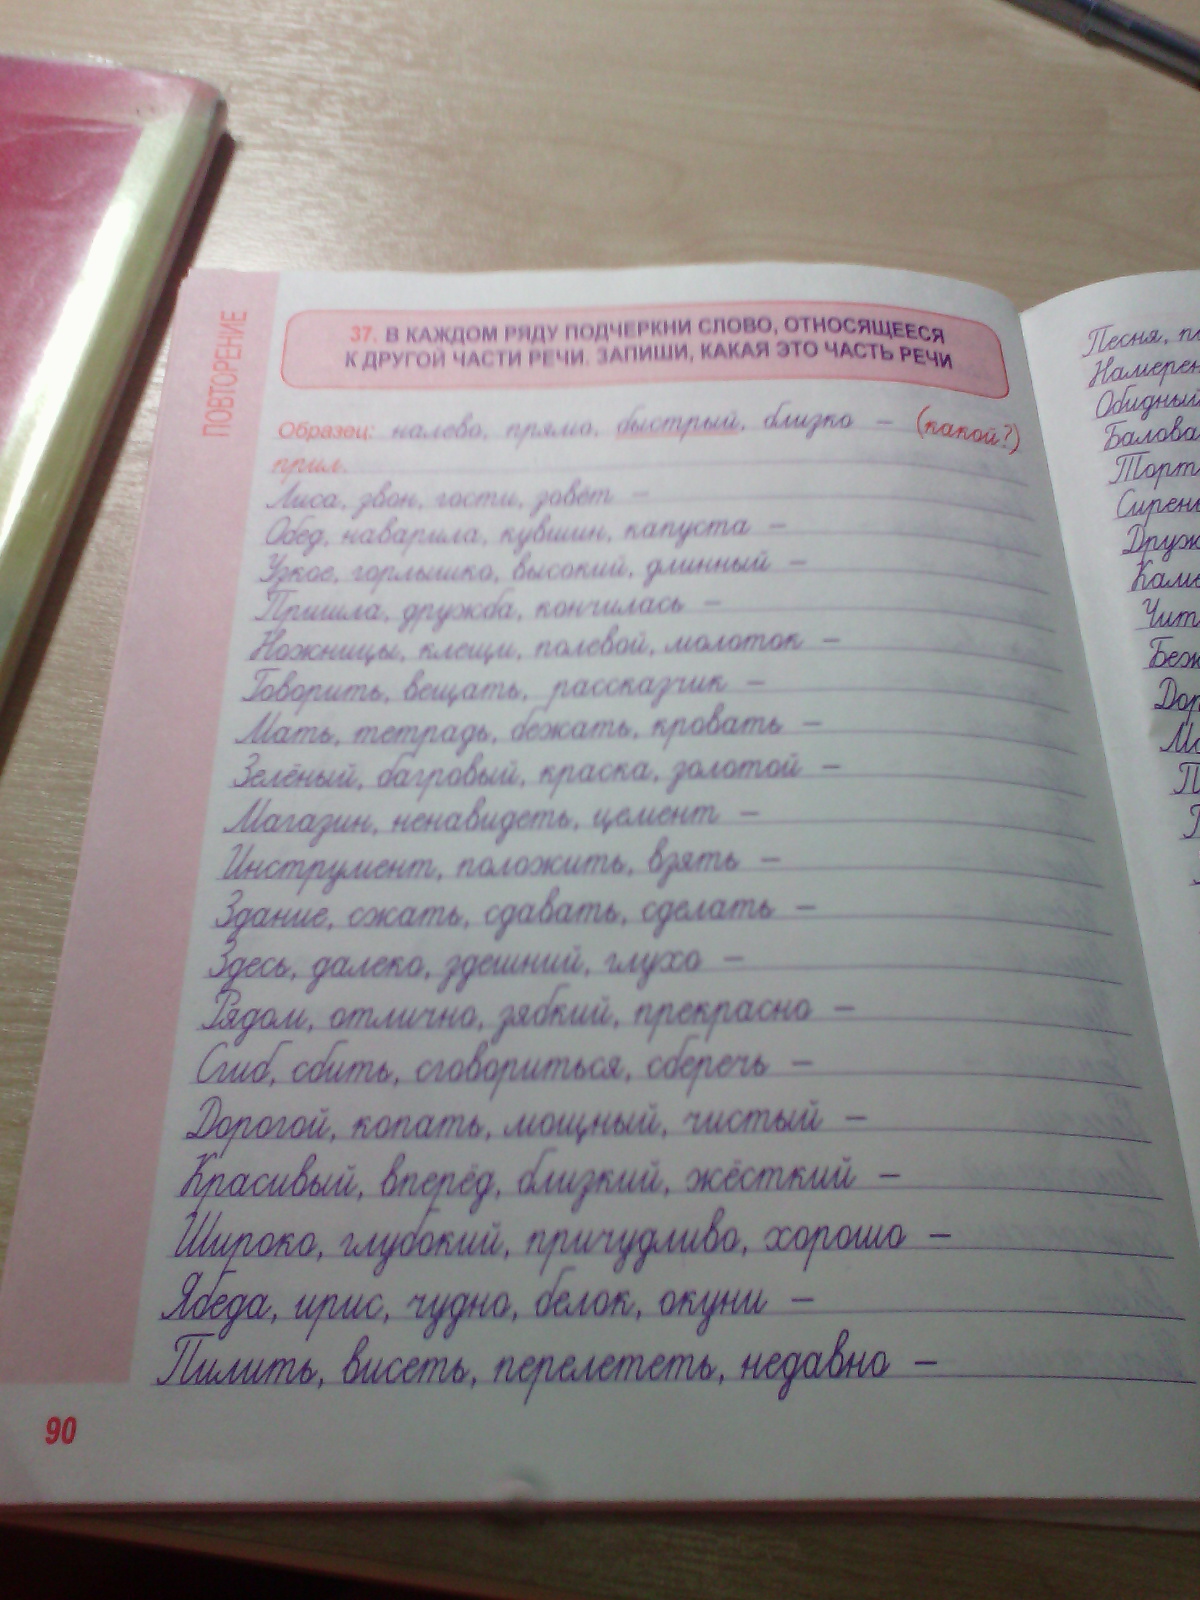 ПОВТОРЕНИЕ
37. В КАЖДОМ РЯДУ ПОДЧЕРКНИ СЛОВО, ОТНОСЯЩЕЕСЯ
К ДРУГОЙ ЧАСТИ РЕЧИ. ЗАПИШИ, КАКАЯ ЭТО ЧАСТЬ РЕЧИ
Образец: налево, прямо, быстрый, близко – (какой?)
прил.
Лиса, звон, гости, зовёт –
Обед, наварила, кувшин, капуста –
Узкое, горлышко, высокий, длинный –
Пришла, дружба, кончилась –
Ножницы, клещи, полевой, молоток –
Говорить, вещать, рассказчик –
Мать, тетрадь, бежать, кровать –
Зелёный, багровый, краска, золотой –
Магазин, ненавидеть, цемент –
Инструмент, положить, взять –
Здание, сжать, сдавать, сделать –
Здесь, далеко, здешний, глухо –
Рядом, отлично, зябкий, прекрасно –
Сгиб, сбить, сговориться, сберечь –
Дорогой, копать, мощный, чистый –
Красивый, вперёд, близкий, жёсткий –
Широко, глубокий, причудливо, хорошо –
Ябеда, ирис, чудно, белок, окуни –
Пилить, висеть, перелететь, недавно –
90
Песня,
Обидный